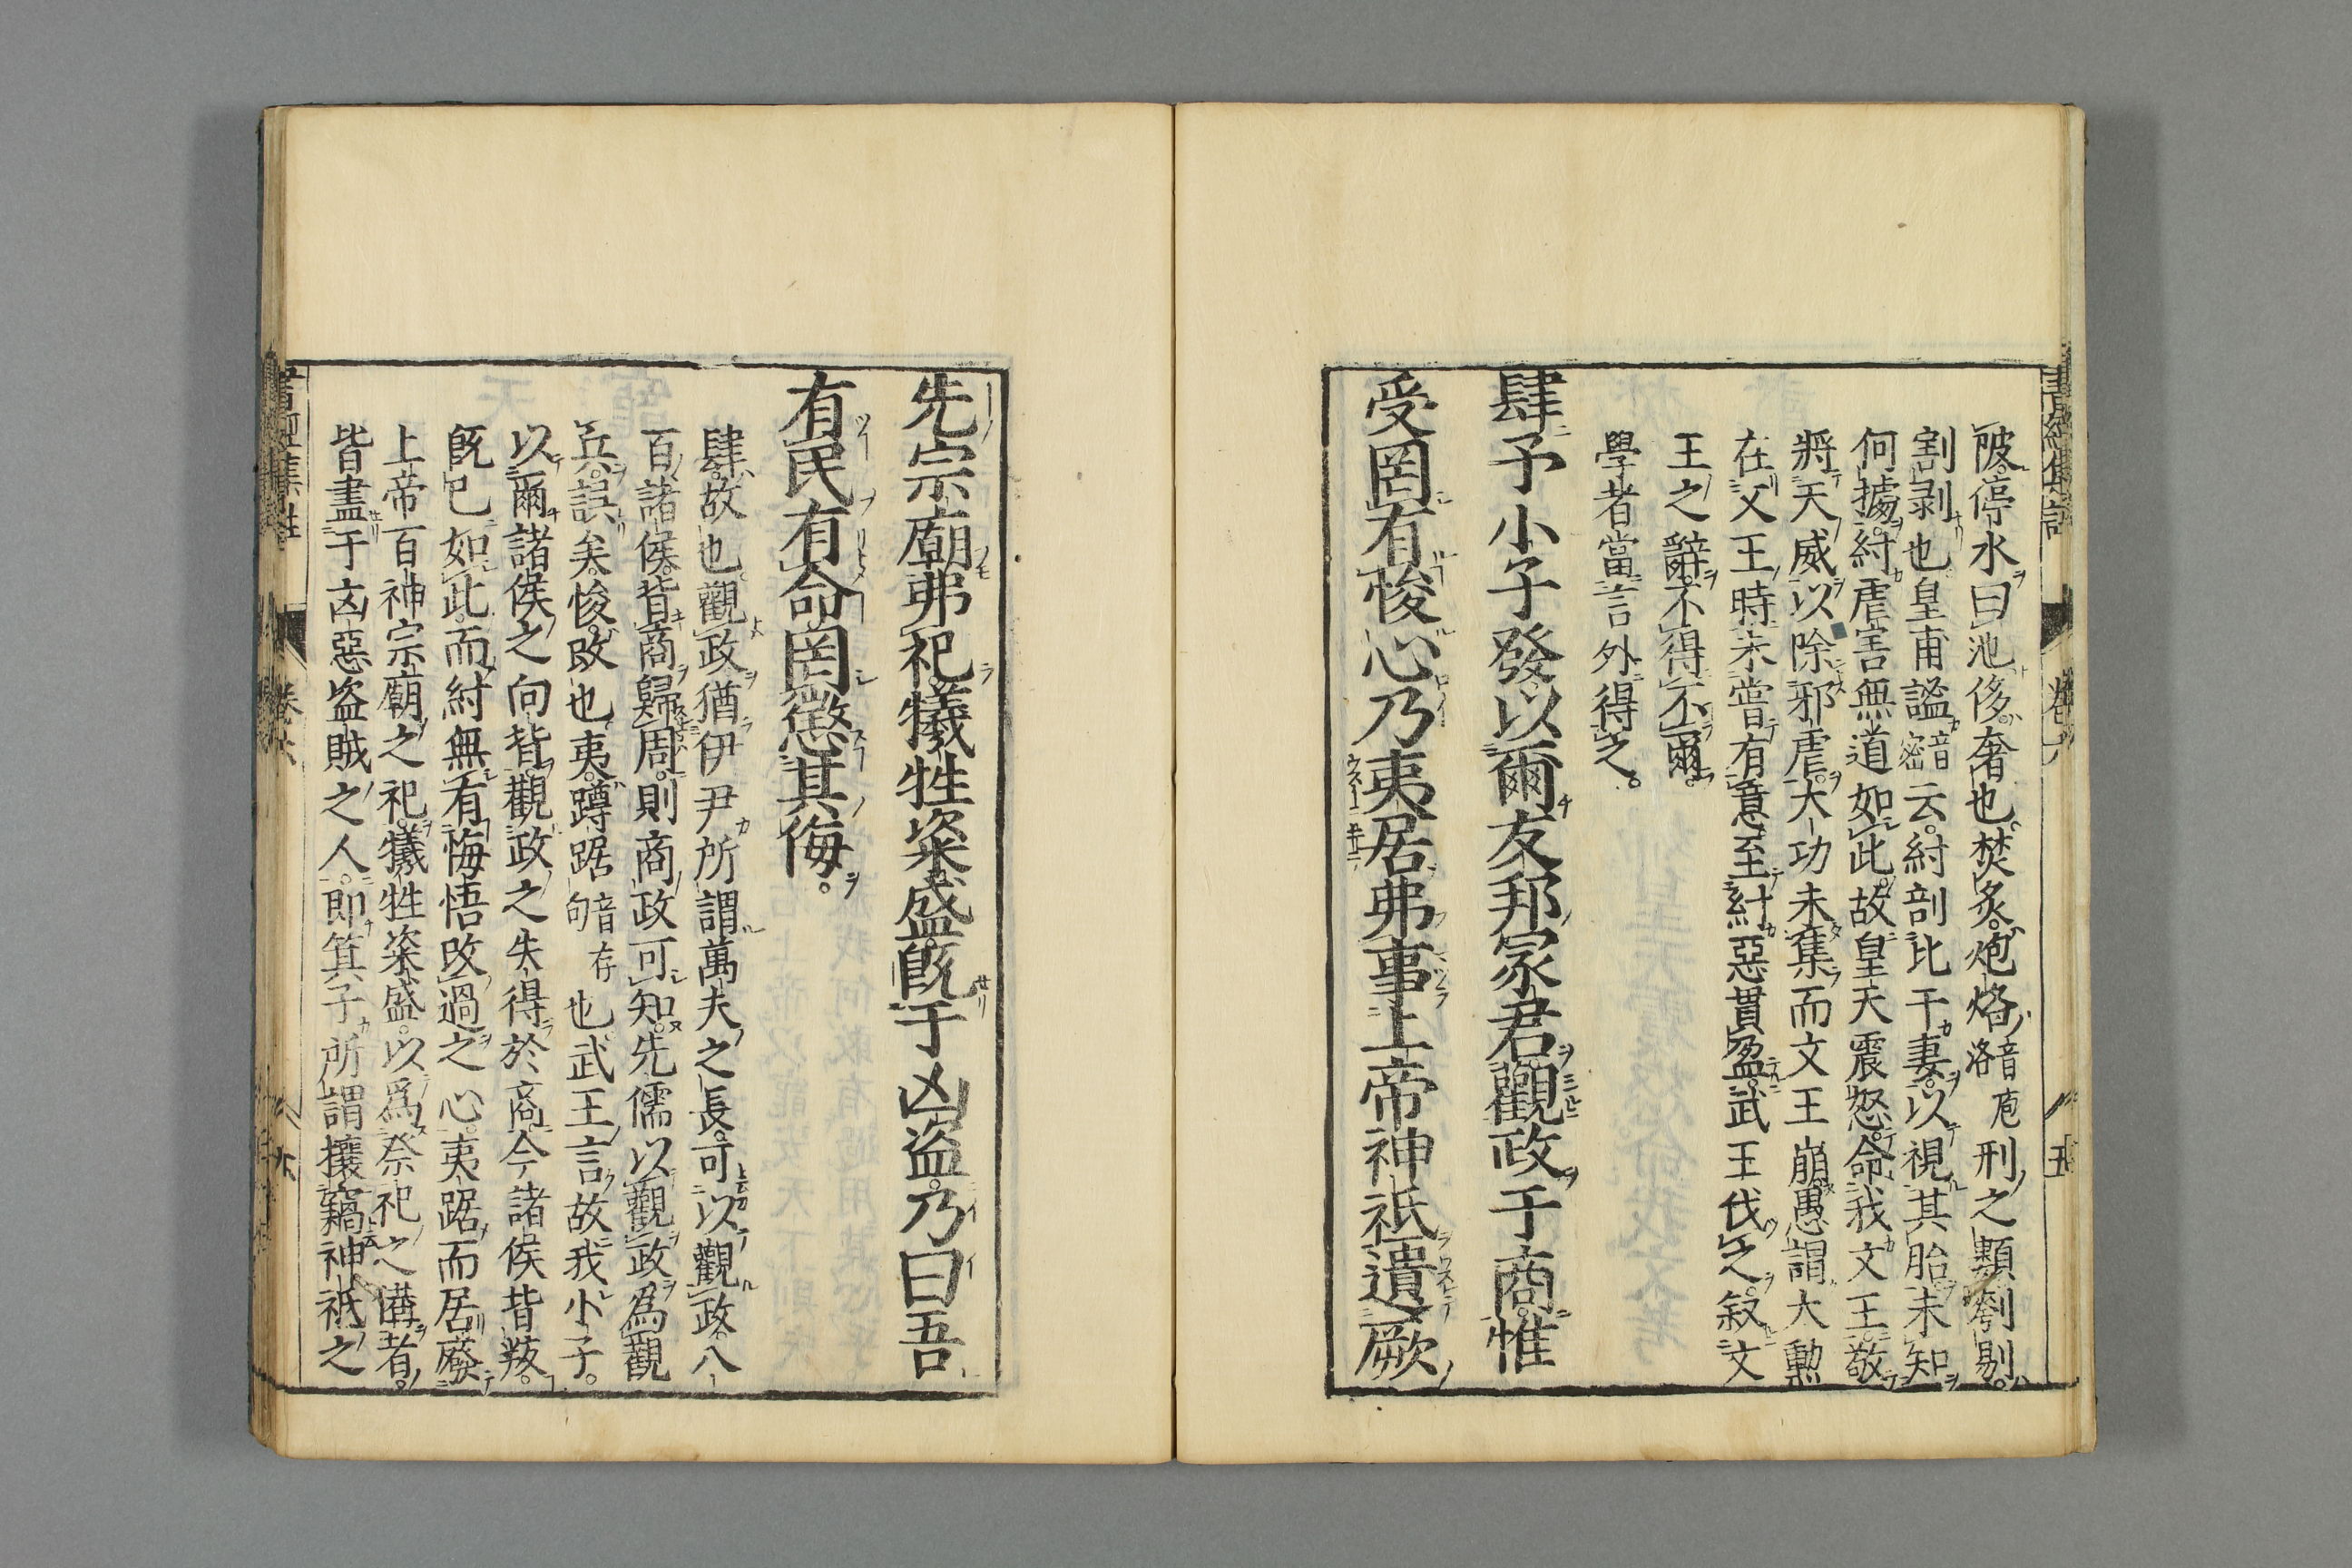 陂。停水曰池。侈。奢也。焚炙。炮烙音庖洛刑之類。刳剔。
割剥也。皇甫謐音密云。紂剖比干妻。以視其胎。未知
何據。紂虐害無道如此。故皇天震怒。命我文王。敬
將天威。以除邪虐。大功未集。而文王崩。愚謂。大勲
在文王時。未嘗有意。至紂惡貫盈。武王伐之。叙文
王之辭。不得不爾。
學者當言外得之。
肆予小子發。以爾友邦冢君。觀政于商。惟
受罔有悛心。乃夷居弗事上帝神祇。遺厥
先宗廟弗祀。犧牲粢盛。既于凶盜。乃曰吾
有民有命。罔懲其侮。
肆。故也。觀政。猶伊尹所謂萬夫之長。可以觀政。八
百諸侯。皆商歸周。則商政可知。先儒以觀政為觀
兵。誤矣。悛。改也。夷。蹲踞音存句也。武王言故我小子。
以爾諸侯之向背。觀政之失得於商。今諸侯皆叛。
既已如此。而紂無有悔悟改過之心。夷踞而居。廢
上帝百神宗廟之祀。犧牲粢盛。以爲祭祀之備者。
皆盡于凶惡盜賊之人。即箕子所謂攘竊神祇之
書經集註
卷六
五